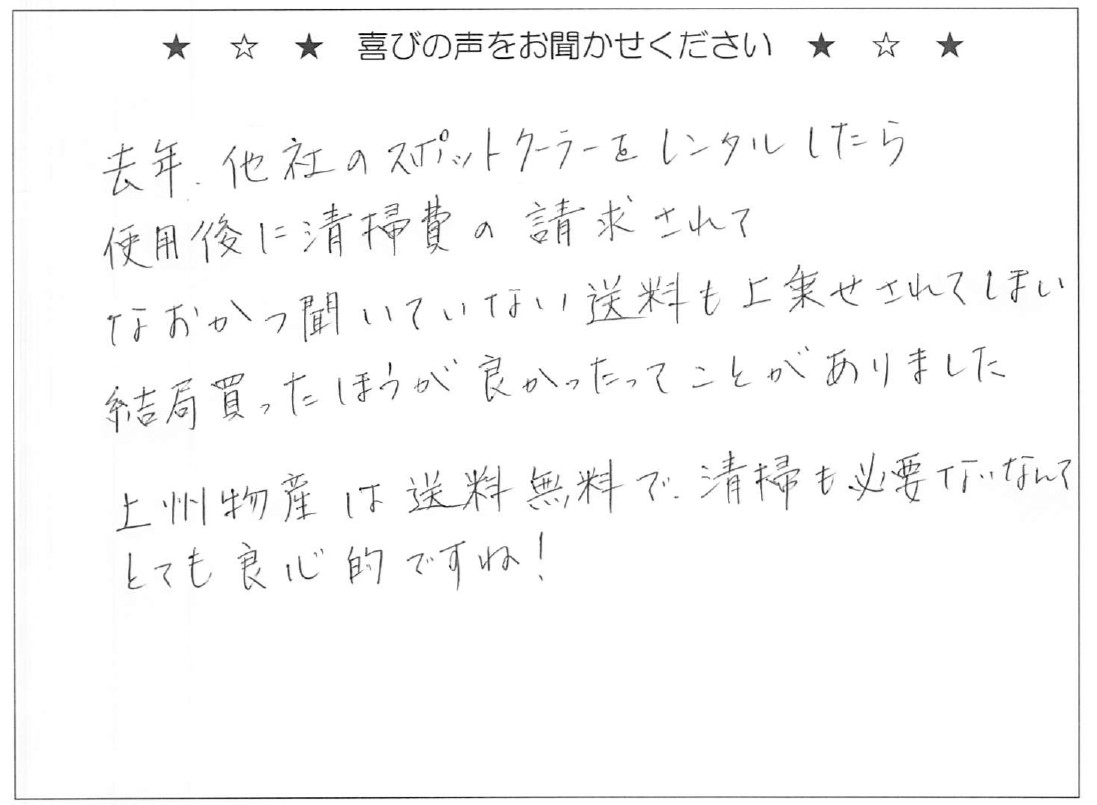 ★ ☆ ★ 喜びの声をお聞かせください ★ ☆ ★
去年、他社のスポットクーラーをレンタルしたら
使用後に清掃費の請求されて
なおかつ聞いていない送料も上乗せされてしまい
結局買ったほうが良かったってことがありました
上州物産は送料無料で、清掃も必要ないなんて
とても良心的ですね！